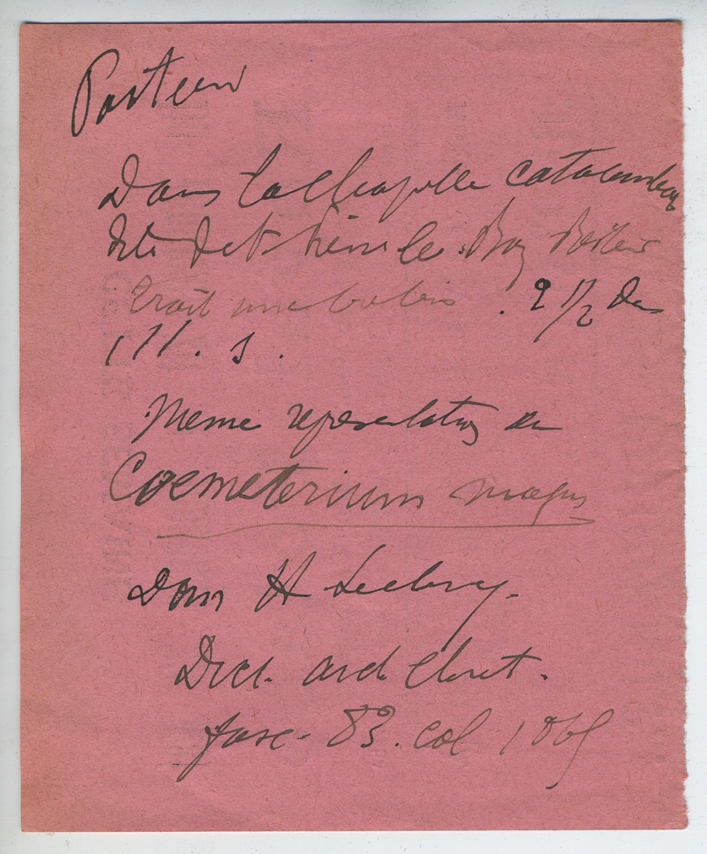 Pasteur
Dans la chapelle catacombes
dite de Ste Priscille. Bon Pasteur
trait une brebis. 2 1/2 du
III. s.
Meme representation au
Coemeterium majus
Dom H Leclercq.
Dict. arch chret.
fasc. 83. col 1869